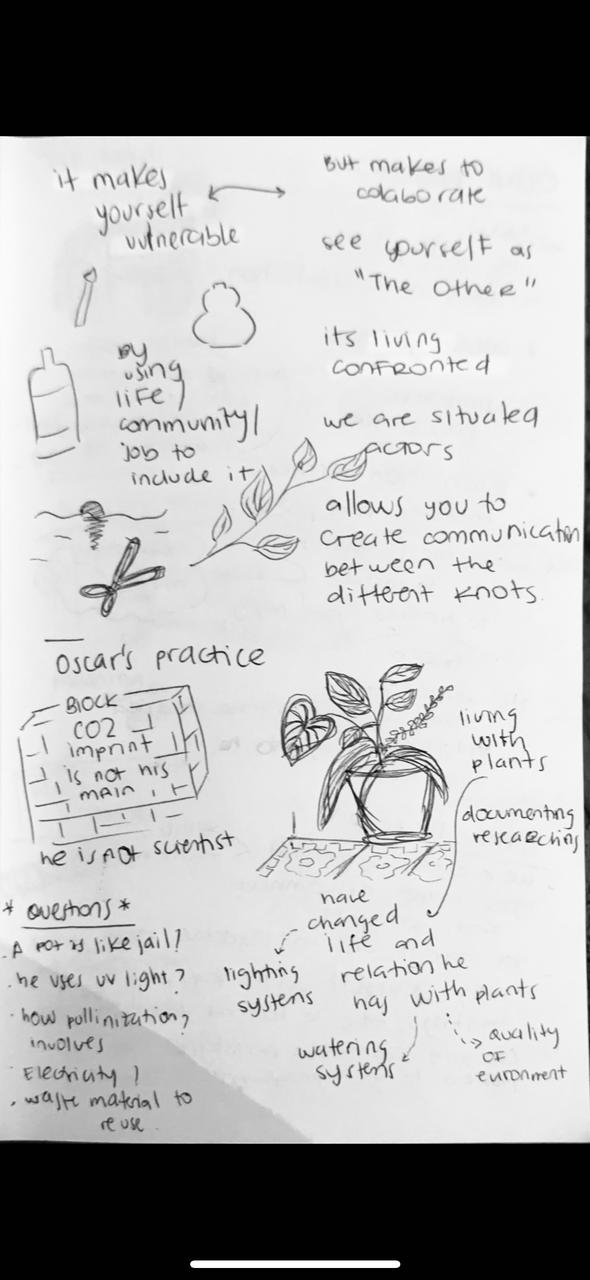 it makes
yourself
vulnerable
But makes to
colaborate
see yourself as
"The Other"
by
using
life/
community/
job to
include it
its living
confronted
we are situated
actors
allows you to
create communication
between the
different knots.
oscar's practice
BLOCK
CO2
imprint
is not his
main
he is not scientist
living
with
plants
documenting
researching
have
changed
life and
relation he
has with plants
lighting
systems
watering
systems
quality
of
euronment
* Questions *
. A pot is like jail?
. he uses uv light?
. how pollinization?
involves
Electricity?
. waste material to
reuse.